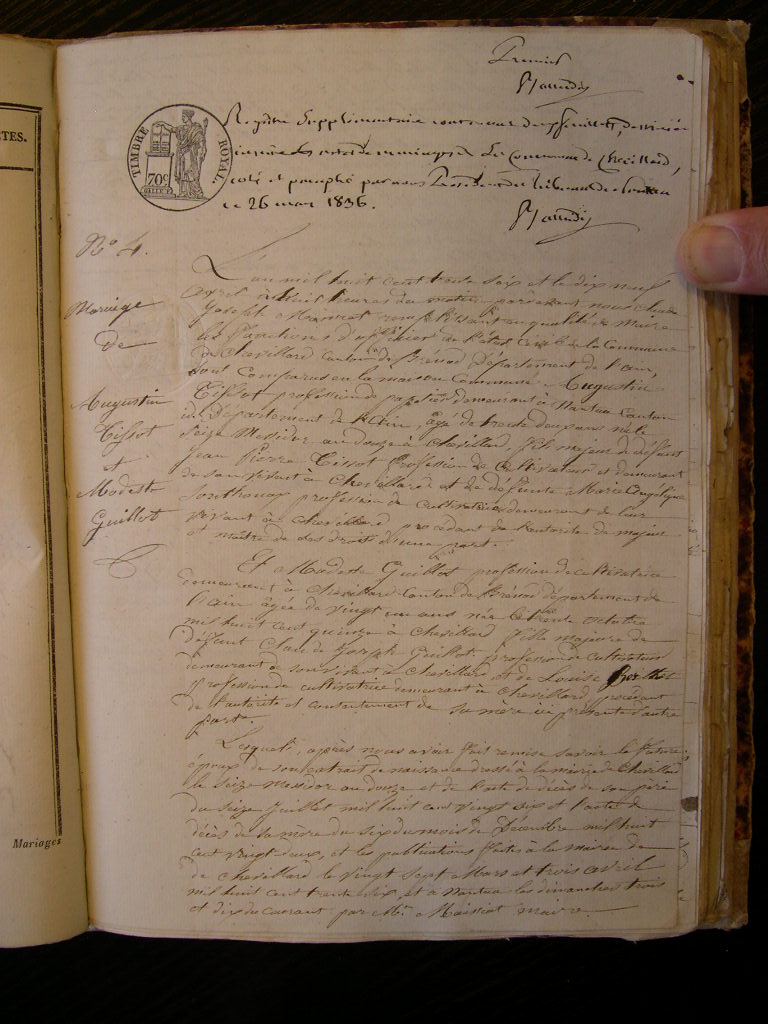 TES.
Mariages
Premier
TIMBRE ROYAL.
70c
Registre Supplémentaire contenant deux feuillets destinés à
inscrire les actes de mariages de la Commune de Chevillard,
coté et paraphé par nous Président du Tribunal de Nantua
ce 26 mars 1836.
No 4.
Mariage
de
Augustin
Tissot
et
Modeste
Guillot
L'an mil huit cent trente six et le dix neuf
avril à huit heures du matin pardevant nous Claude
Joseph remplissant en qualité de Maire
les fonctions d'officier de l'état civil de la Commune
de Chevillard canton de Brénod Département de l'ain,
sont comparus en la maison Commune Augustin
Tissot profession de papetier demeurant à Nantua canton
du Département de l'Ain, âgé de trente deux ans né le
seize Messidor an douze à Chevillard fils majeur de défunt
Jean Pierre Tissot profession de cultivateur et demeurant
de son vivant à Chevillard et de défunte Marie Angélique
Sonthonax profession de cultivatrice demeurant de leur
vivant à Chevillard procédant de l'autorité de majeur
et maître de ses droits d'une part.
Et Modeste Guillot profession de cultivatrice
demeurant à Chevillard Canton de Brénod département de
l'ain âgée de vingt un ans née le trente octobre
mil huit cent quinze à Chevillard fille majeure de
défunt Claude Joseph Guillot profession de cultivateur
demeurant de son vivant à Chevillard et de Louise
profession de cultivatrice demeurant à Chevillard procédant
de l'autorité et consentement de sa mère ici présente d'autre
part.
Lesquels, après nous avoir fait remise savoir le futur
époux de son extrait de naissance dressé à la mairie de Chevillard
le seize Messidor an douze et de l'acte de décès de son père
du seize Juillet mil huit cent vingt six et l'acte de
décès de sa mère du six du mois de Décembre mil huit
cent vingt deux, et les publications faites à la mairie de
de Chevillard le vingt sept Mars et trois avril
mil huit cent trente six, et à Nantua les dimanches trois
et dix du courant par Mr. Maissiat maire.